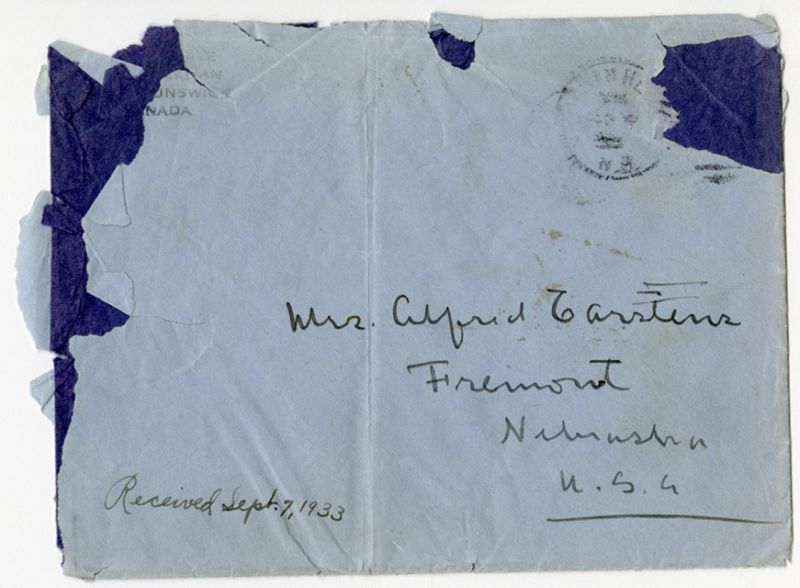 VE
NAN
UNSWICK
NADA
Mrs. Alfred Carstens
Fremont
Nebraska
U.S.A
Received Sept. 7, 1933